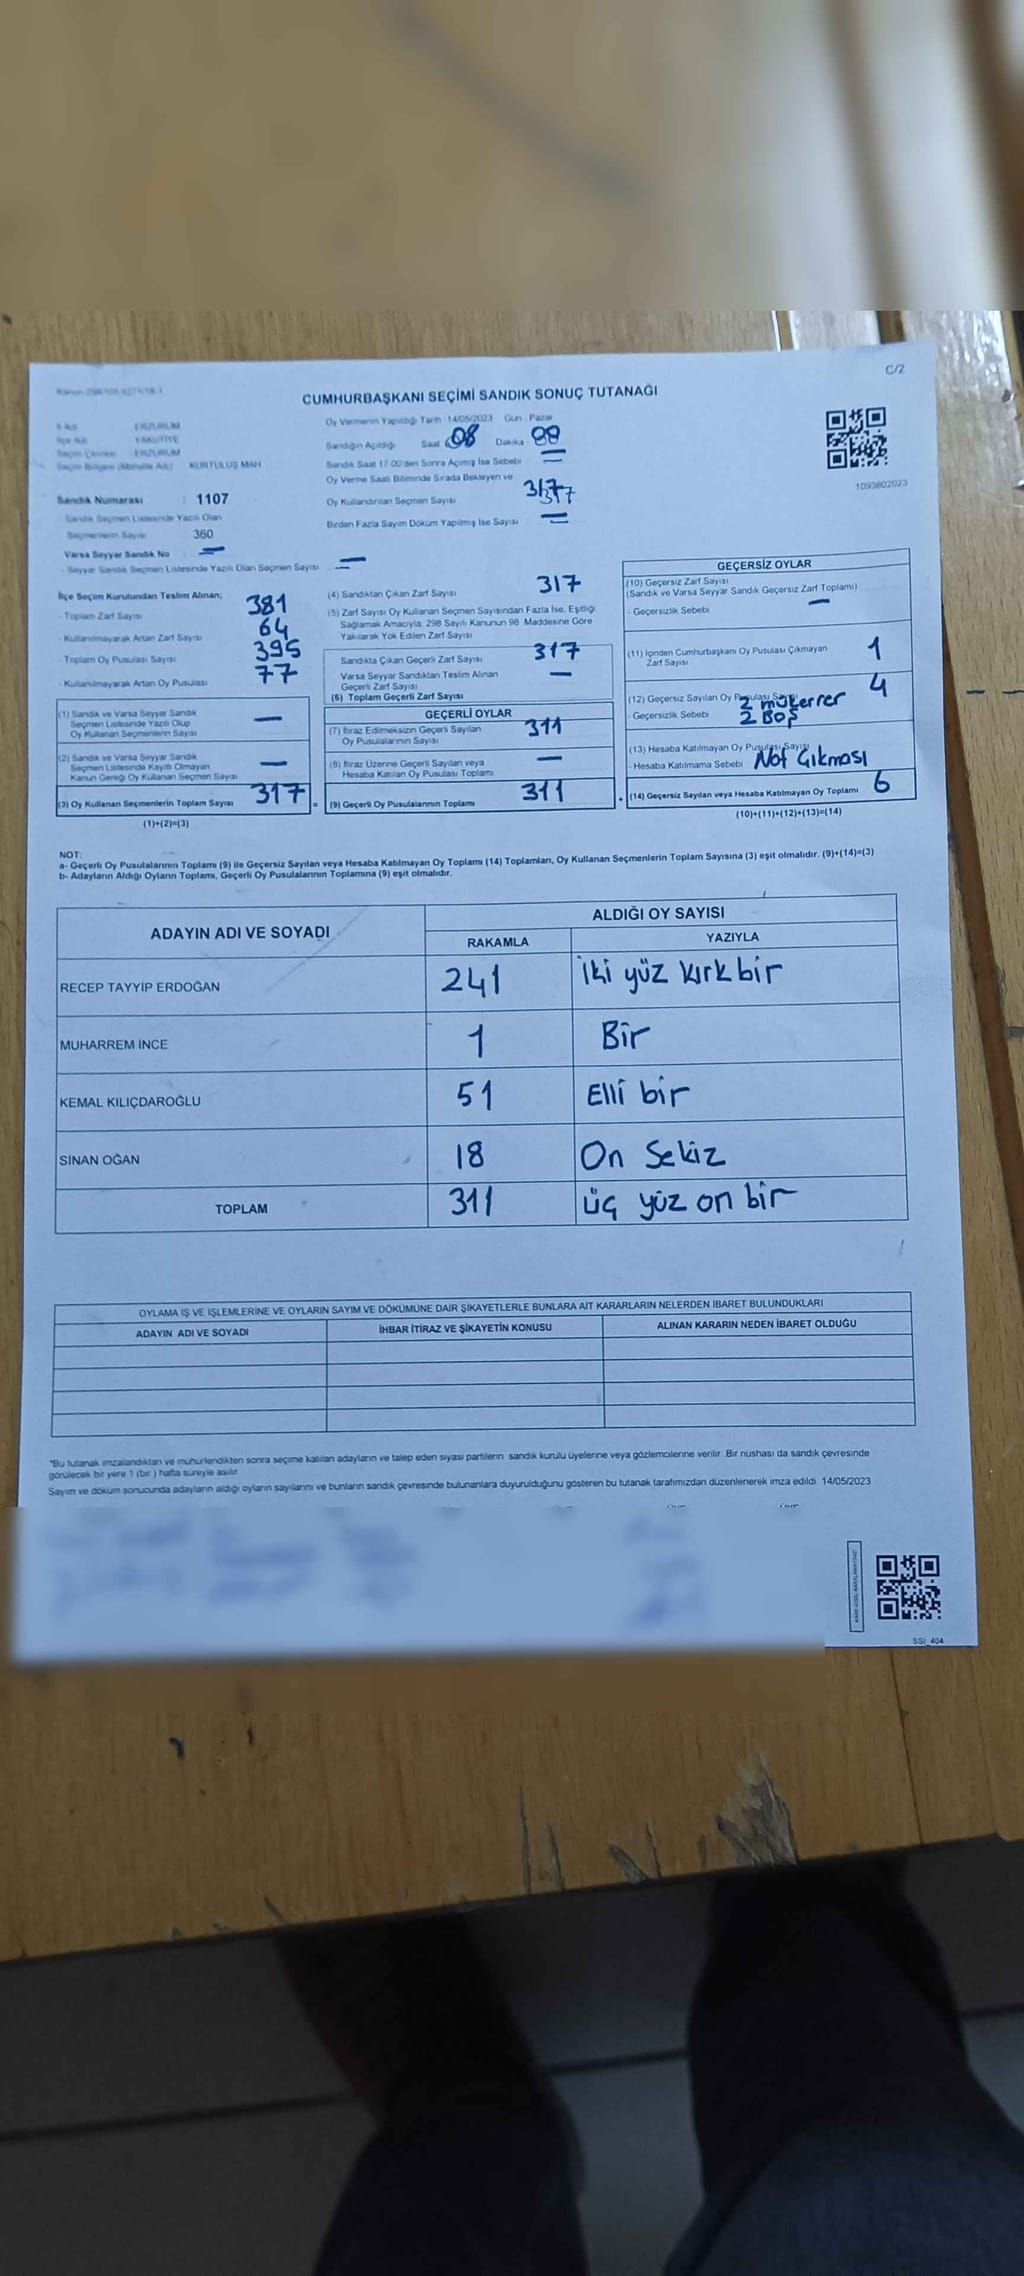 C/2
CUMHURBAŞKANI SEÇİMİ SANDIK SONUÇ TUTANAĞI
İl Adı : ERZURUM
İlçe Adı : YAKUTİYE
Seçim Çevresi : ERZURUM
Seçim Bölgesi (Mahalle Adı) : KURTULUŞ MAH
Sandık Numarası : 1107
Sandık Seçmen Listesinde Yazılı Olan
Seçmenlerin Sayısı : 360
Varsa Seyyar Sandık No : —
- Seyyar Sandık Seçmen Listesinde Yazılı Olan Seçmen Sayısı : —
Oy Vermenin Yapıldığı Tarih 14/05/2023 Gün : Pazar
Sandığın Açıldığı Saat 08 Dakika
Sandık Saat 17:00'den Sonra Açılmış İse Sebebi —
Oy Verme Saati Bitiminde Sırada Bekleyen ve
Oy Kullandırılan Seçmen Sayısı 317
Birden Fazla Sayım Döküm Yapılmış İse Sayısı —
1093802023
İlçe Seçim Kurulundan Teslim Alınan;
- Toplam Zarf Sayısı 381
- Kullanılmayarak Artan Zarf Sayısı 64
- Toplam Oy Pusulası Sayısı 395
- Kullanılmayarak Artan Oy Pusulası 77
(1) Sandık ve Varsa Seyyar Sandık
Seçmen Listesinde Yazılı Olup
Oy Kullanan Seçmenlerin Sayısı —
(2) Sandık ve Varsa Seyyar Sandık
Seçmen Listesinde Kayıtlı Olmayan
Kanun Gereği Oy Kullanan Seçmen Sayısı —
(3) Oy Kullanan Seçmenlerin Toplam Sayısı 317 =
(1)+(2)=(3)
(4) Sandıktan Çıkan Zarf Sayısı 317
(5) Zarf Sayısı Oy Kullanan Seçmen Sayısından Fazla İse, Eşitliği
Sağlamak Amacıyla, 298 Sayılı Kanunun 98. Maddesine Göre
Yakılarak Yok Edilen Zarf Sayısı
Sandıkta Çıkan Geçerli Zarf Sayısı 317
Varsa Seyyar Sandıktan Teslim Alınan
Geçerli Zarf Sayısı —
(6) Toplam Geçerli Zarf Sayısı
GEÇERLİ OYLAR
(7) İtiraz Edilmeksizin Geçerli Sayılan
Oy Pusulalarının Sayısı 311
(8) İtiraz Üzerine Geçerli Sayılan veya
Hesaba Katılan Oy Pusulası Toplamı —
(9) Geçerli Oy Pusulalarının Toplamı 311 +
GEÇERSİZ OYLAR
(10) Geçersiz Zarf Sayısı
(Sandık ve Varsa Seyyar Sandık Geçersiz Zarf Toplamı)
- Geçersizlik Sebebi —
(11) İçinden Cumhurbaşkanı Oy Pusulası Çıkmayan
Zarf Sayısı 1
(12) Geçersiz Sayılan Oy Pusulası Sayısı 4
- Geçersizlik Sebebi 2 mükerrer
2 Boş
(13) Hesaba Katılmayan Oy Pusulası Sayısı
- Hesaba Katılmama Sebebi Not Çıkması
(14) Geçersiz Sayılan veya Hesaba Katılmayan Oy Toplamı 6
(10)+(11)+(12)+(13)=(14)
NOT:
a- Geçerli Oy Pusulalarının Toplamı (9) ile Geçersiz Sayılan veya Hesaba Katılmayan Oy Toplamı (14) Toplamları, Oy Kullanan Seçmenlerin Toplam Sayısına (3) eşit olmalıdır. (9)+(14)=(3)
b- Adayların Aldığı Oyların Toplamı, Geçerli Oy Pusulalarının Toplamına (9) eşit olmalıdır.
ADAYIN ADI VE SOYADI
ALDIĞI OY SAYISI
RAKAMLA YAZIYLA
RECEP TAYYİP ERDOĞAN 241 iki yüz kırk bir
MUHARREM İNCE 1 Bir
KEMAL KILIÇDAROĞLU 51 Elli bir
SİNAN OĞAN 18 On Sekiz
TOPLAM 311 üç yüz on bir
OYLAMA İŞ VE İŞLEMLERİNE VE OYLARIN SAYIM VE DÖKÜMÜNE DAİR ŞİKAYETLERLE BUNLARA AİT KARARLARIN NELERDEN İBARET BULUNDUKLARI
ADAYIN ADI VE SOYADI İHBAR İTİRAZ VE ŞİKAYETİN KONUSU ALINAN KARARIN NEDEN İBARET OLDUĞU
"Bu tutanak imzalandıktan ve mühürlendikten sonra seçime katılan adayların ve talep eden siyasi partilerin sandık kurulu üyelerine veya gözlemcilerine verilir. Bir nüshası da sandık çevresinde
görülecek bir yere 1 (bir) hafta süreyle asılır.
Sayım ve döküm sonucunda adayların aldığı oyların sayılarını ve bunların sandık çevresinde bulunanlara duyurulduğunu gösteren bu tutanak tarafımızdan düzenlenerek imza edildi. 14/05/2023
SSI_404